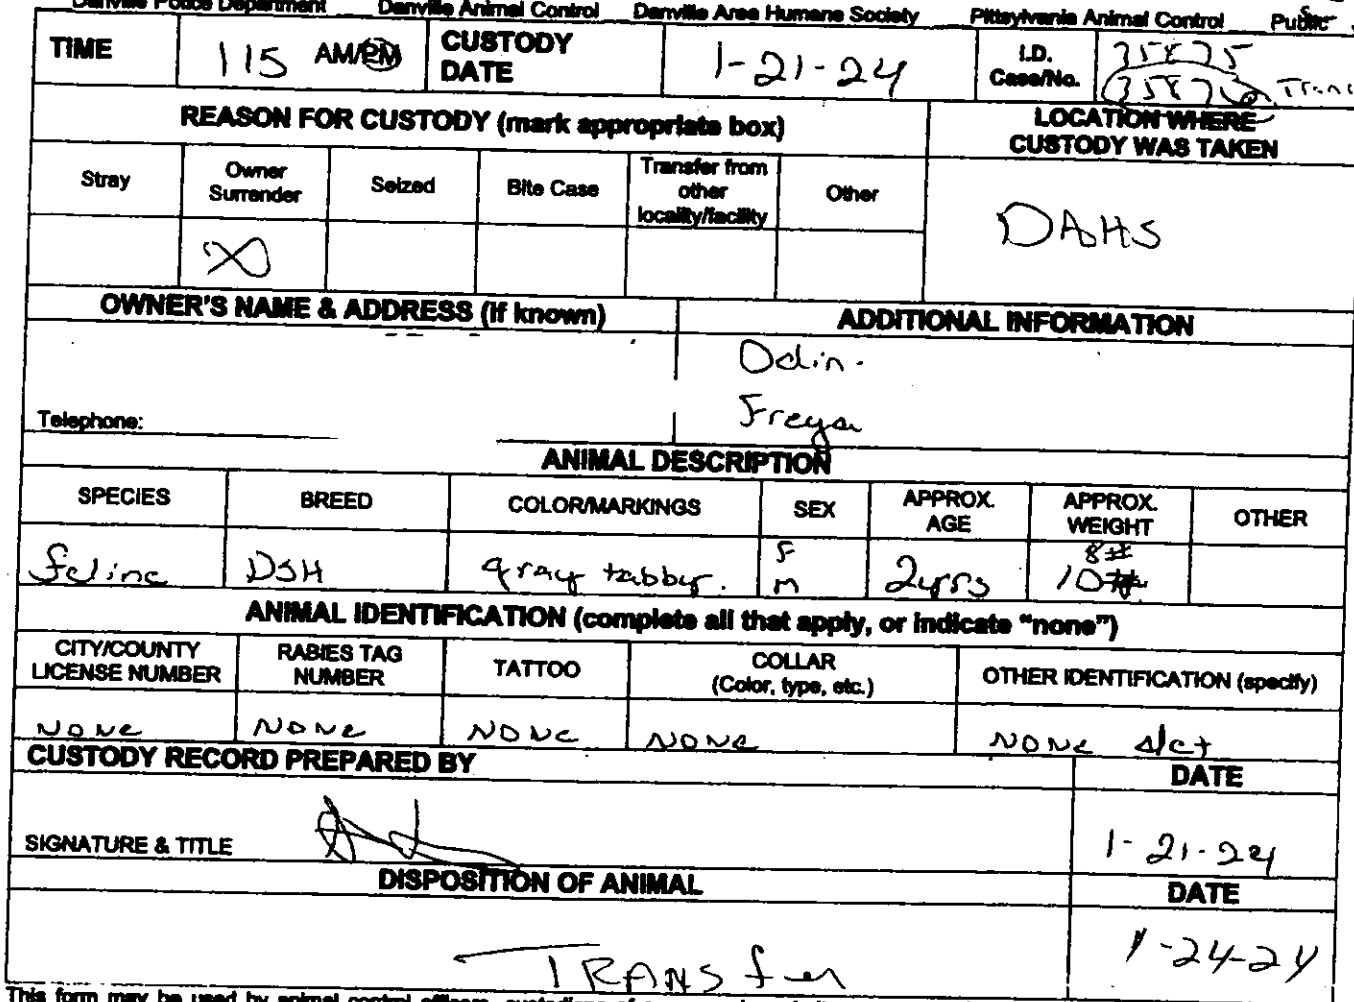 Danville Police Department Danville Animal Control Danville Area Humane Society Pittsylvania Animal Control Public
TIME 115 AM/PM CUSTODY DATE 1-21-24 I.D. Case/No. 35875
35876
REASON FOR CUSTODY (mark appropriate box) LOCATION WHERE CUSTODY WAS TAKEN
Stray Owner Surrender Seized Bite Case Transfer from other locality/facility Other
X DAHS
OWNER'S NAME & ADDRESS (if known) ADDITIONAL INFORMATION
Odin.
Freya
Telephone:
ANIMAL DESCRIPTION
SPECIES BREED COLOR/MARKINGS SEX APPROX. AGE APPROX. WEIGHT OTHER
F 8#
feline DSH gray tabby. M 2yrs 10#
ANIMAL IDENTIFICATION (complete all that apply, or indicate "none")
CITY/COUNTY LICENSE NUMBER RABIES TAG NUMBER TATTOO COLLAR (Color, type, etc.) OTHER IDENTIFICATION (specify)
NONE NONE NONE NONE NONE
CUSTODY RECORD PREPARED BY DATE
SIGNATURE & TITLE 1-21-24
DISPOSITION OF ANIMAL DATE
TRANSfer 1-24-24
This form may be used by animal control officers, custodians of